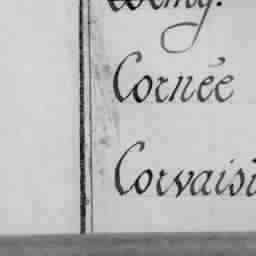 Cornée
Corvaisi